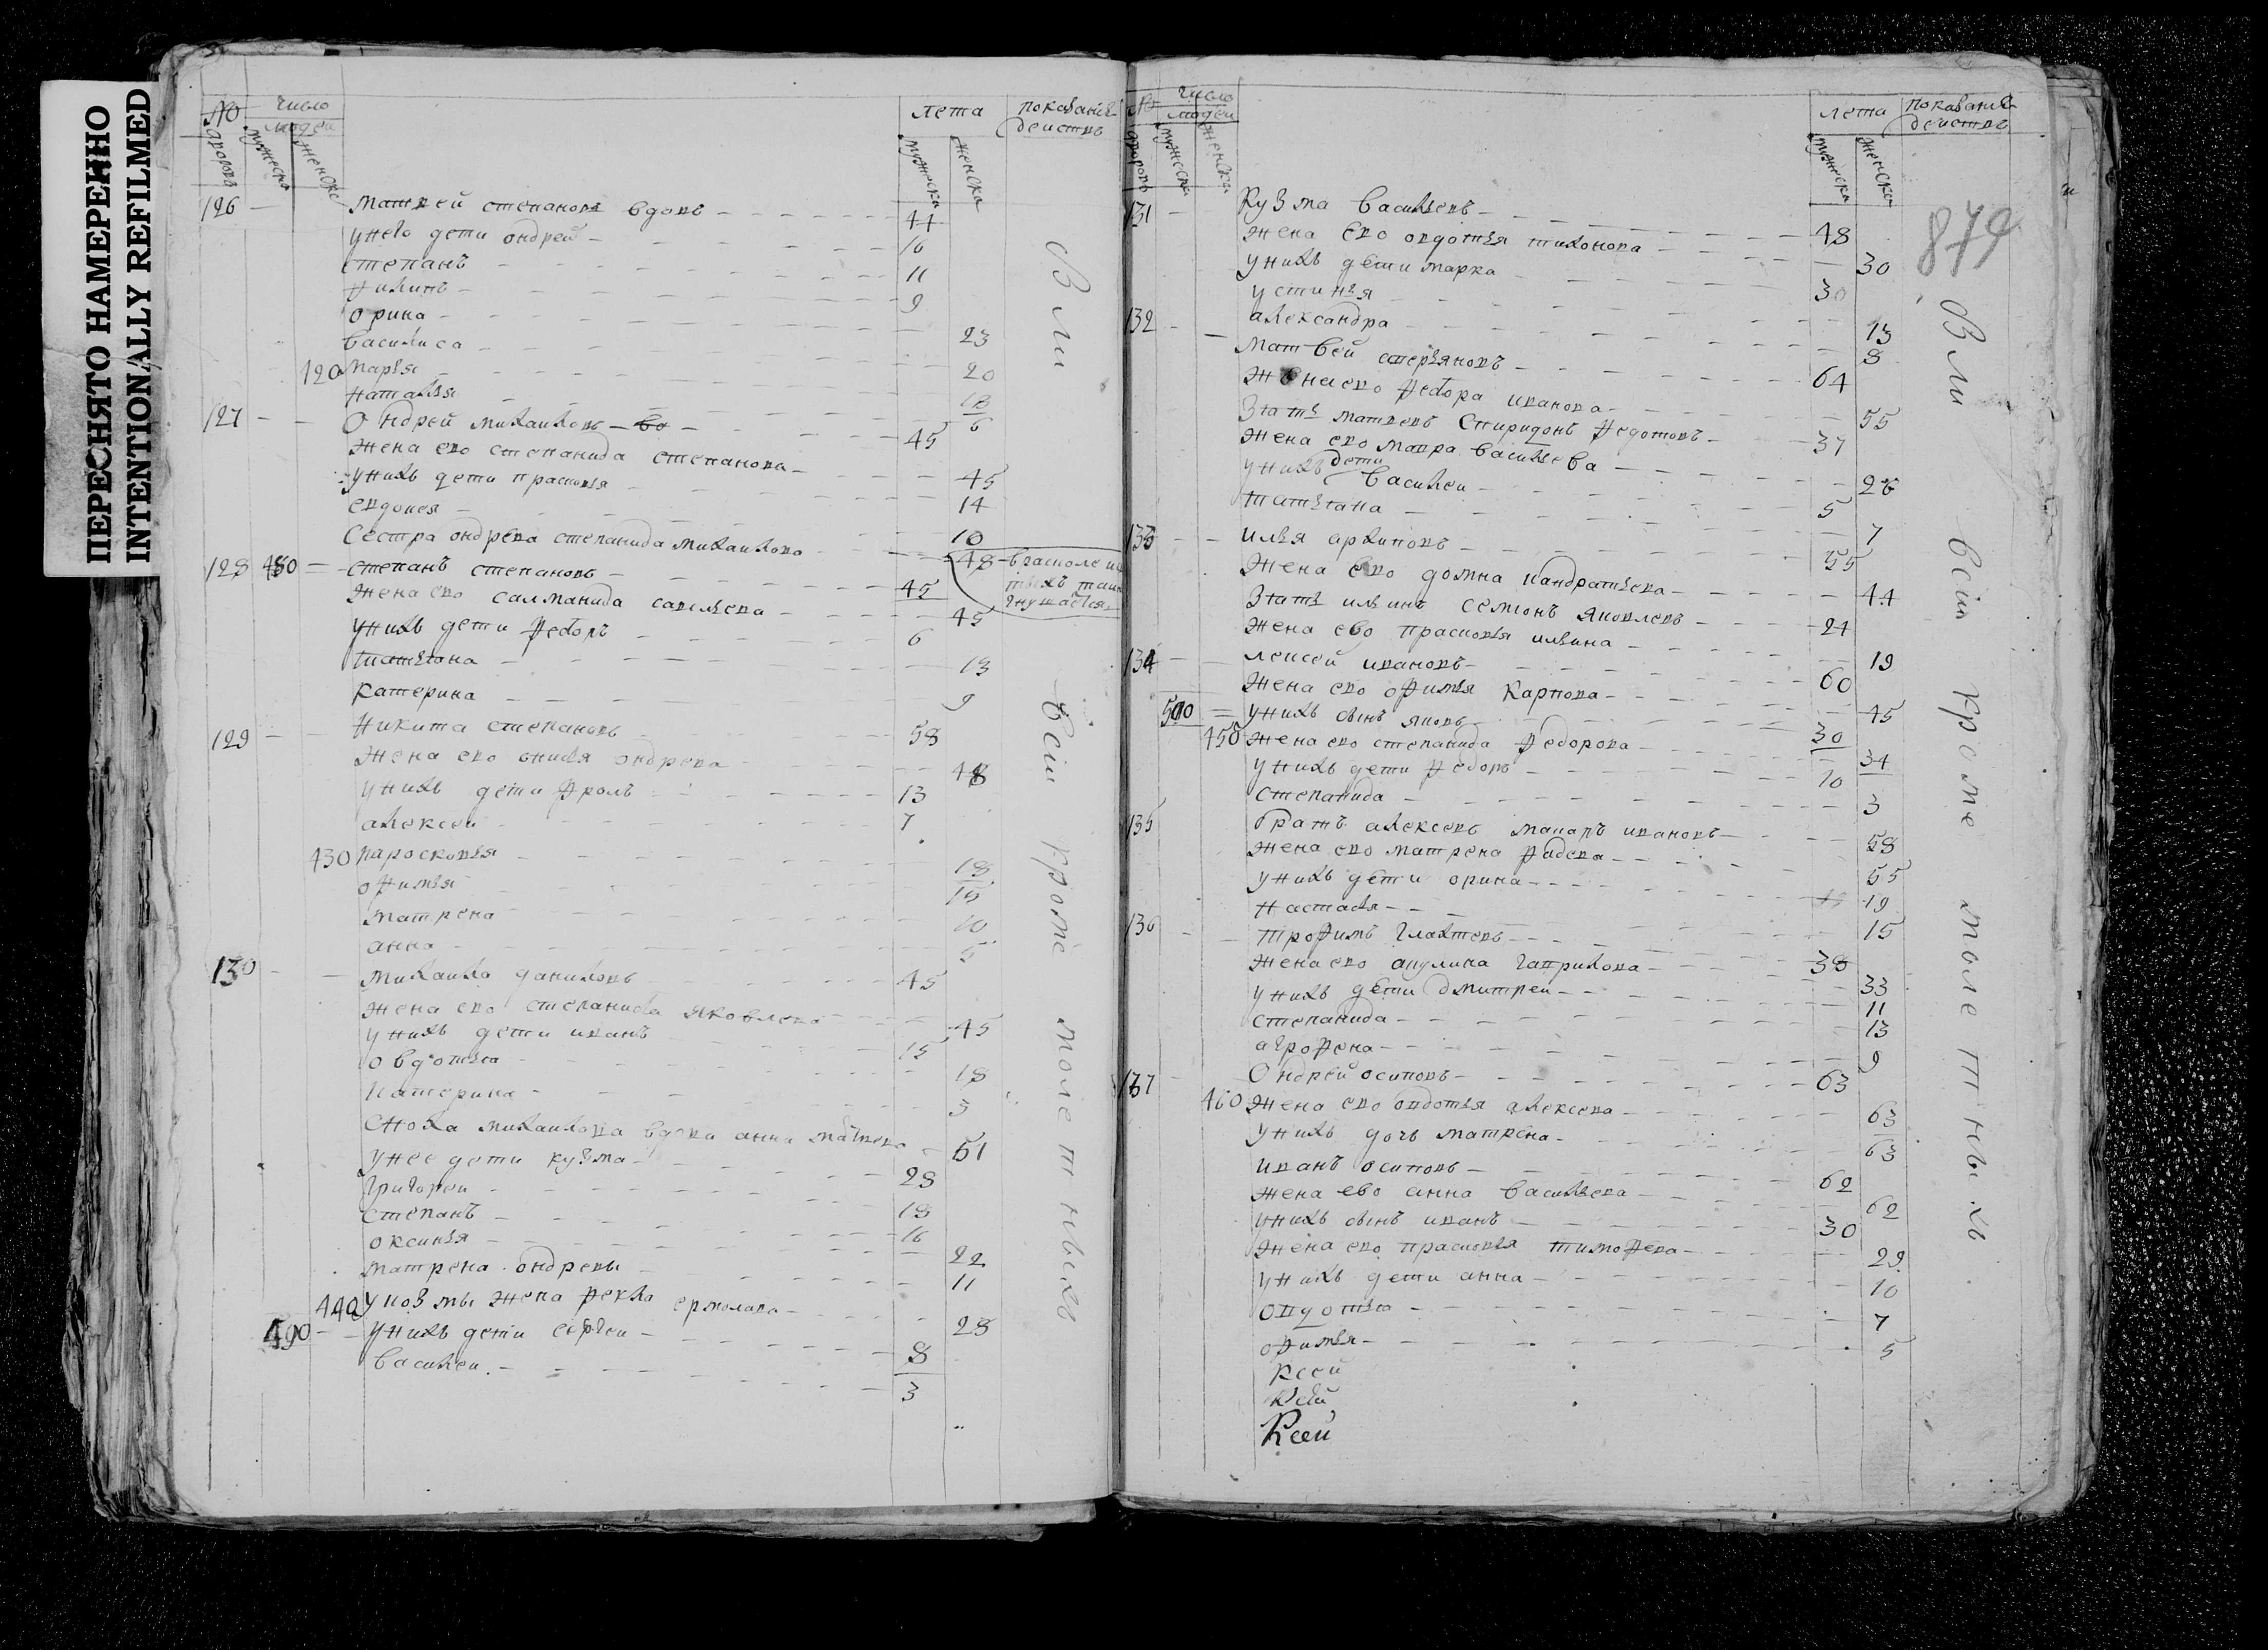 ПЕРЕСНЯТО НАМЕРЕННО
INTENTIONALLY REFILMED
№ дворовъ
число людей
мужеска
женска
лета
мужеска
женска
показание действъ
126 матвей степановъ вдовъ 44
у него дети ондрей 16
степанъ 11
филипъ 9
орина 23
василиса 20
420 марья 18
наталья 6
127 Ондрей михаиловъ 45
жена ево степанида степанова 45
у нихъ дети прасковья 14
евдокея 10
Сестра ондрева степанида михаилова 48 в расколе
128 480 степанъ степановъ 45
жена ево саломанида савельева 45
у нихъ дети федоръ 6
татьяна 13
катерина 9
129 никита степановъ 58
жена ево онисья ондрева 48
у нихъ дети фролъ 13
алексеи 7
430 паросковья 18
офимья 15
матрена 10
анна 5
130 михаила даниловъ 45
жена ево степанида яковлева 45
у нихъ дети иванъ 15
овдотья 18
катерина 3
сноха михаилова вдова анна матвева 51
у нее дети кузма 28
григореи 18
степанъ 16
оксинья 22
матрена ондревы 11
440 у козмы жена фекла ермолава 28
490 у нихъ дети сергеи 8
василеи 3
Вли всии кроме молетныхъ
№ дворовъ
число людей
мужеска
женска
лета
мужеска
женска
показание действъ
879
131 Кузма васильевъ 48
жена ево овдотья тихонова 30
у нихъ дети марка 30
устинья 13
александра 8
132 матвей аверьяновъ 64
жена ево федора иванова 55
зять матвевъ спиридонъ федотовъ 37
жена ево мавра васильева 26
у нихъ дети василеи 5
татьяна 7
133 илья архиповъ 55
жена ево домна кандратьева 44
зять ильинъ семионъ яковлевъ 24
жена ево прасковья ильина 19
134 лексей ивановъ 60
жена ево офимья карпова 45
500 у нихъ сынъ яковъ 30
450 жена ево степанида федорова 34
у нихъ дети федоръ 10
степанида 3
135 братъ алексевъ макаръ ивановъ 58
жена ево матрена фадева 55
у нихъ дети орина 19
настасья 15
136 трофимъ 38
жена ево акулина гаврилова 33
у нихъ дети дмитреи 11
степанида 13
агрофена 9
137 Ондрей осиповъ 63
460 жена ево овдотья алексева 63
у нихъ дочь матрена 63
иванъ осиповъ 62
жена ево анна васильева 62
у нихъ сынъ иванъ 30
жена ево прасковья тимофева 29
у нихъ дети анна 10
овдотья 7
офимья 5
Ксеи
Ксеи
Ксеи
Вли всии кроме молетныхъ